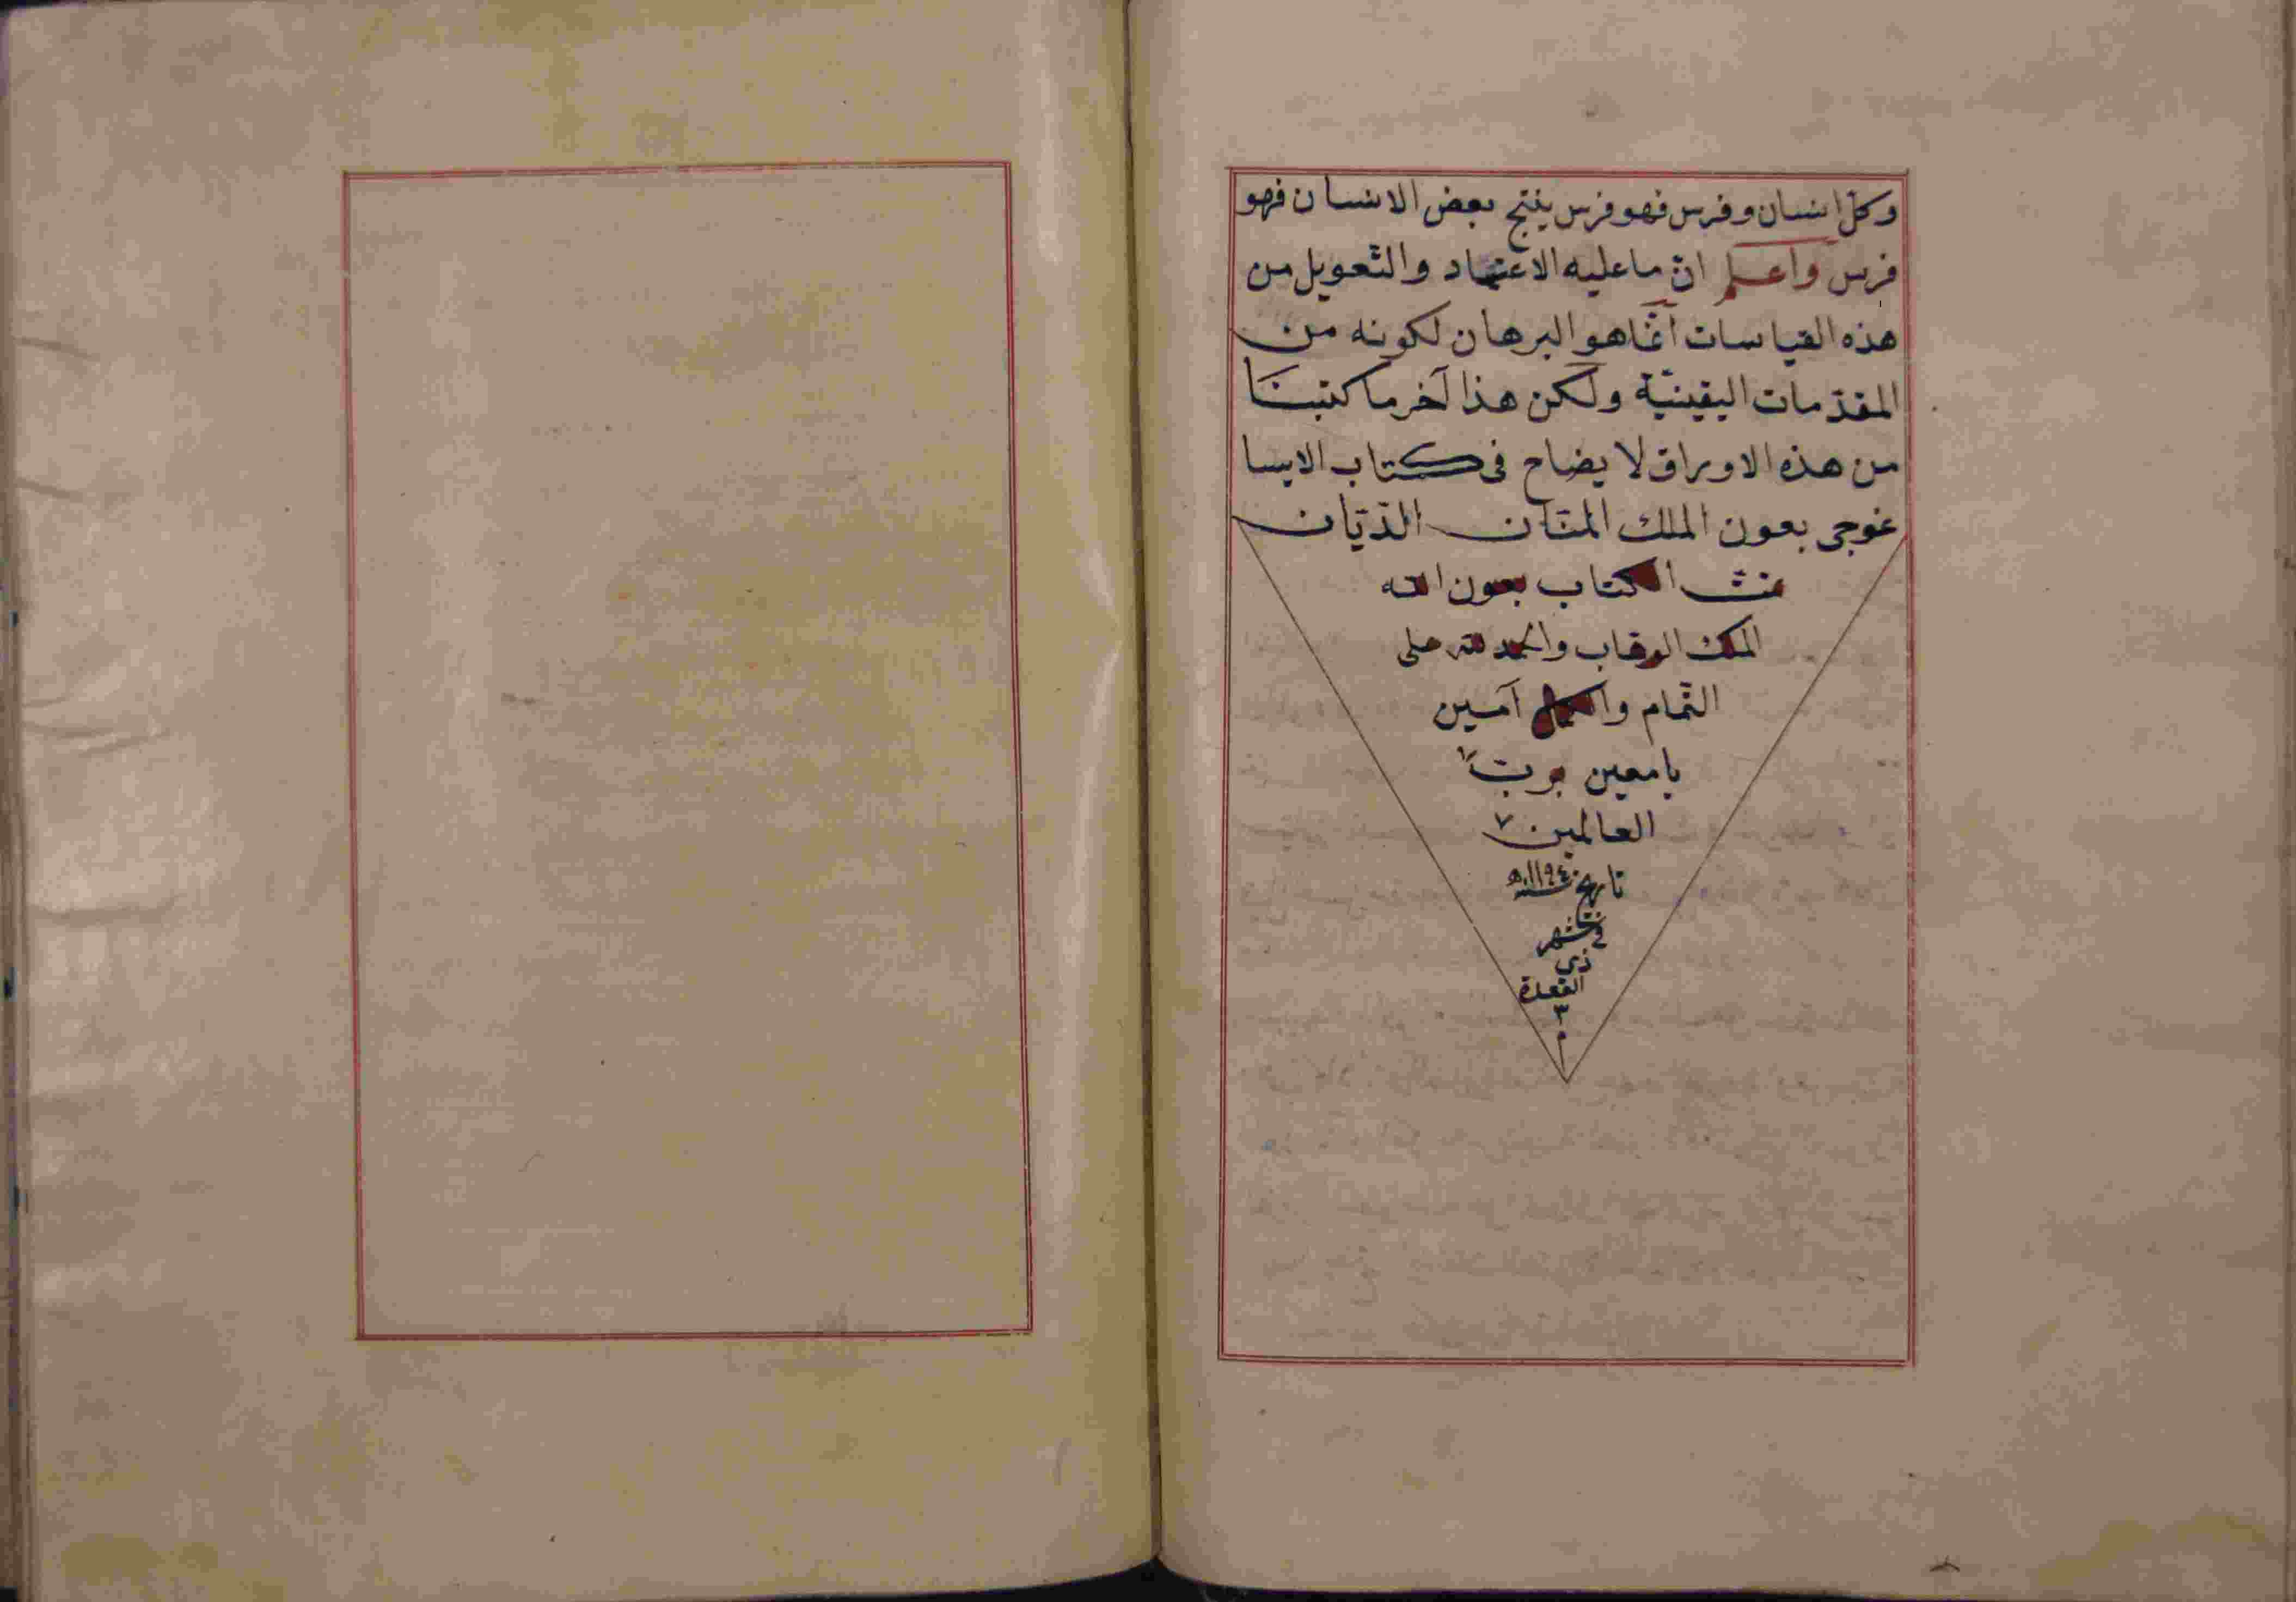 وكلّ انسان وفرس فهو فرس ينتج بعض الانسان فهو
فرس واعلم انّ ما عليه الاعتماد والتّعويل من
هذه القياسات انّما هو البرهان لكونه من
المقدّمات اليقينيّة ولكن هذا آخر ما كتبنا
من هذه الاوراق لا يضاح فى كتاب الايسا
غوجى بعون الملك المنّان الدّيّان
تمّت الكتاب بعون الله
الملك الوهّاب والحمد لله على
التّمام والكمال آمين
يا معين
العالمين
تاريخ سنة ١١٩٤
فى شهر
ذى
القعدة
٣